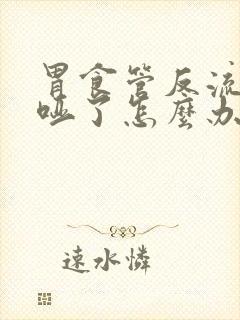 胃食管反流
哑了怎麼办
速水憐